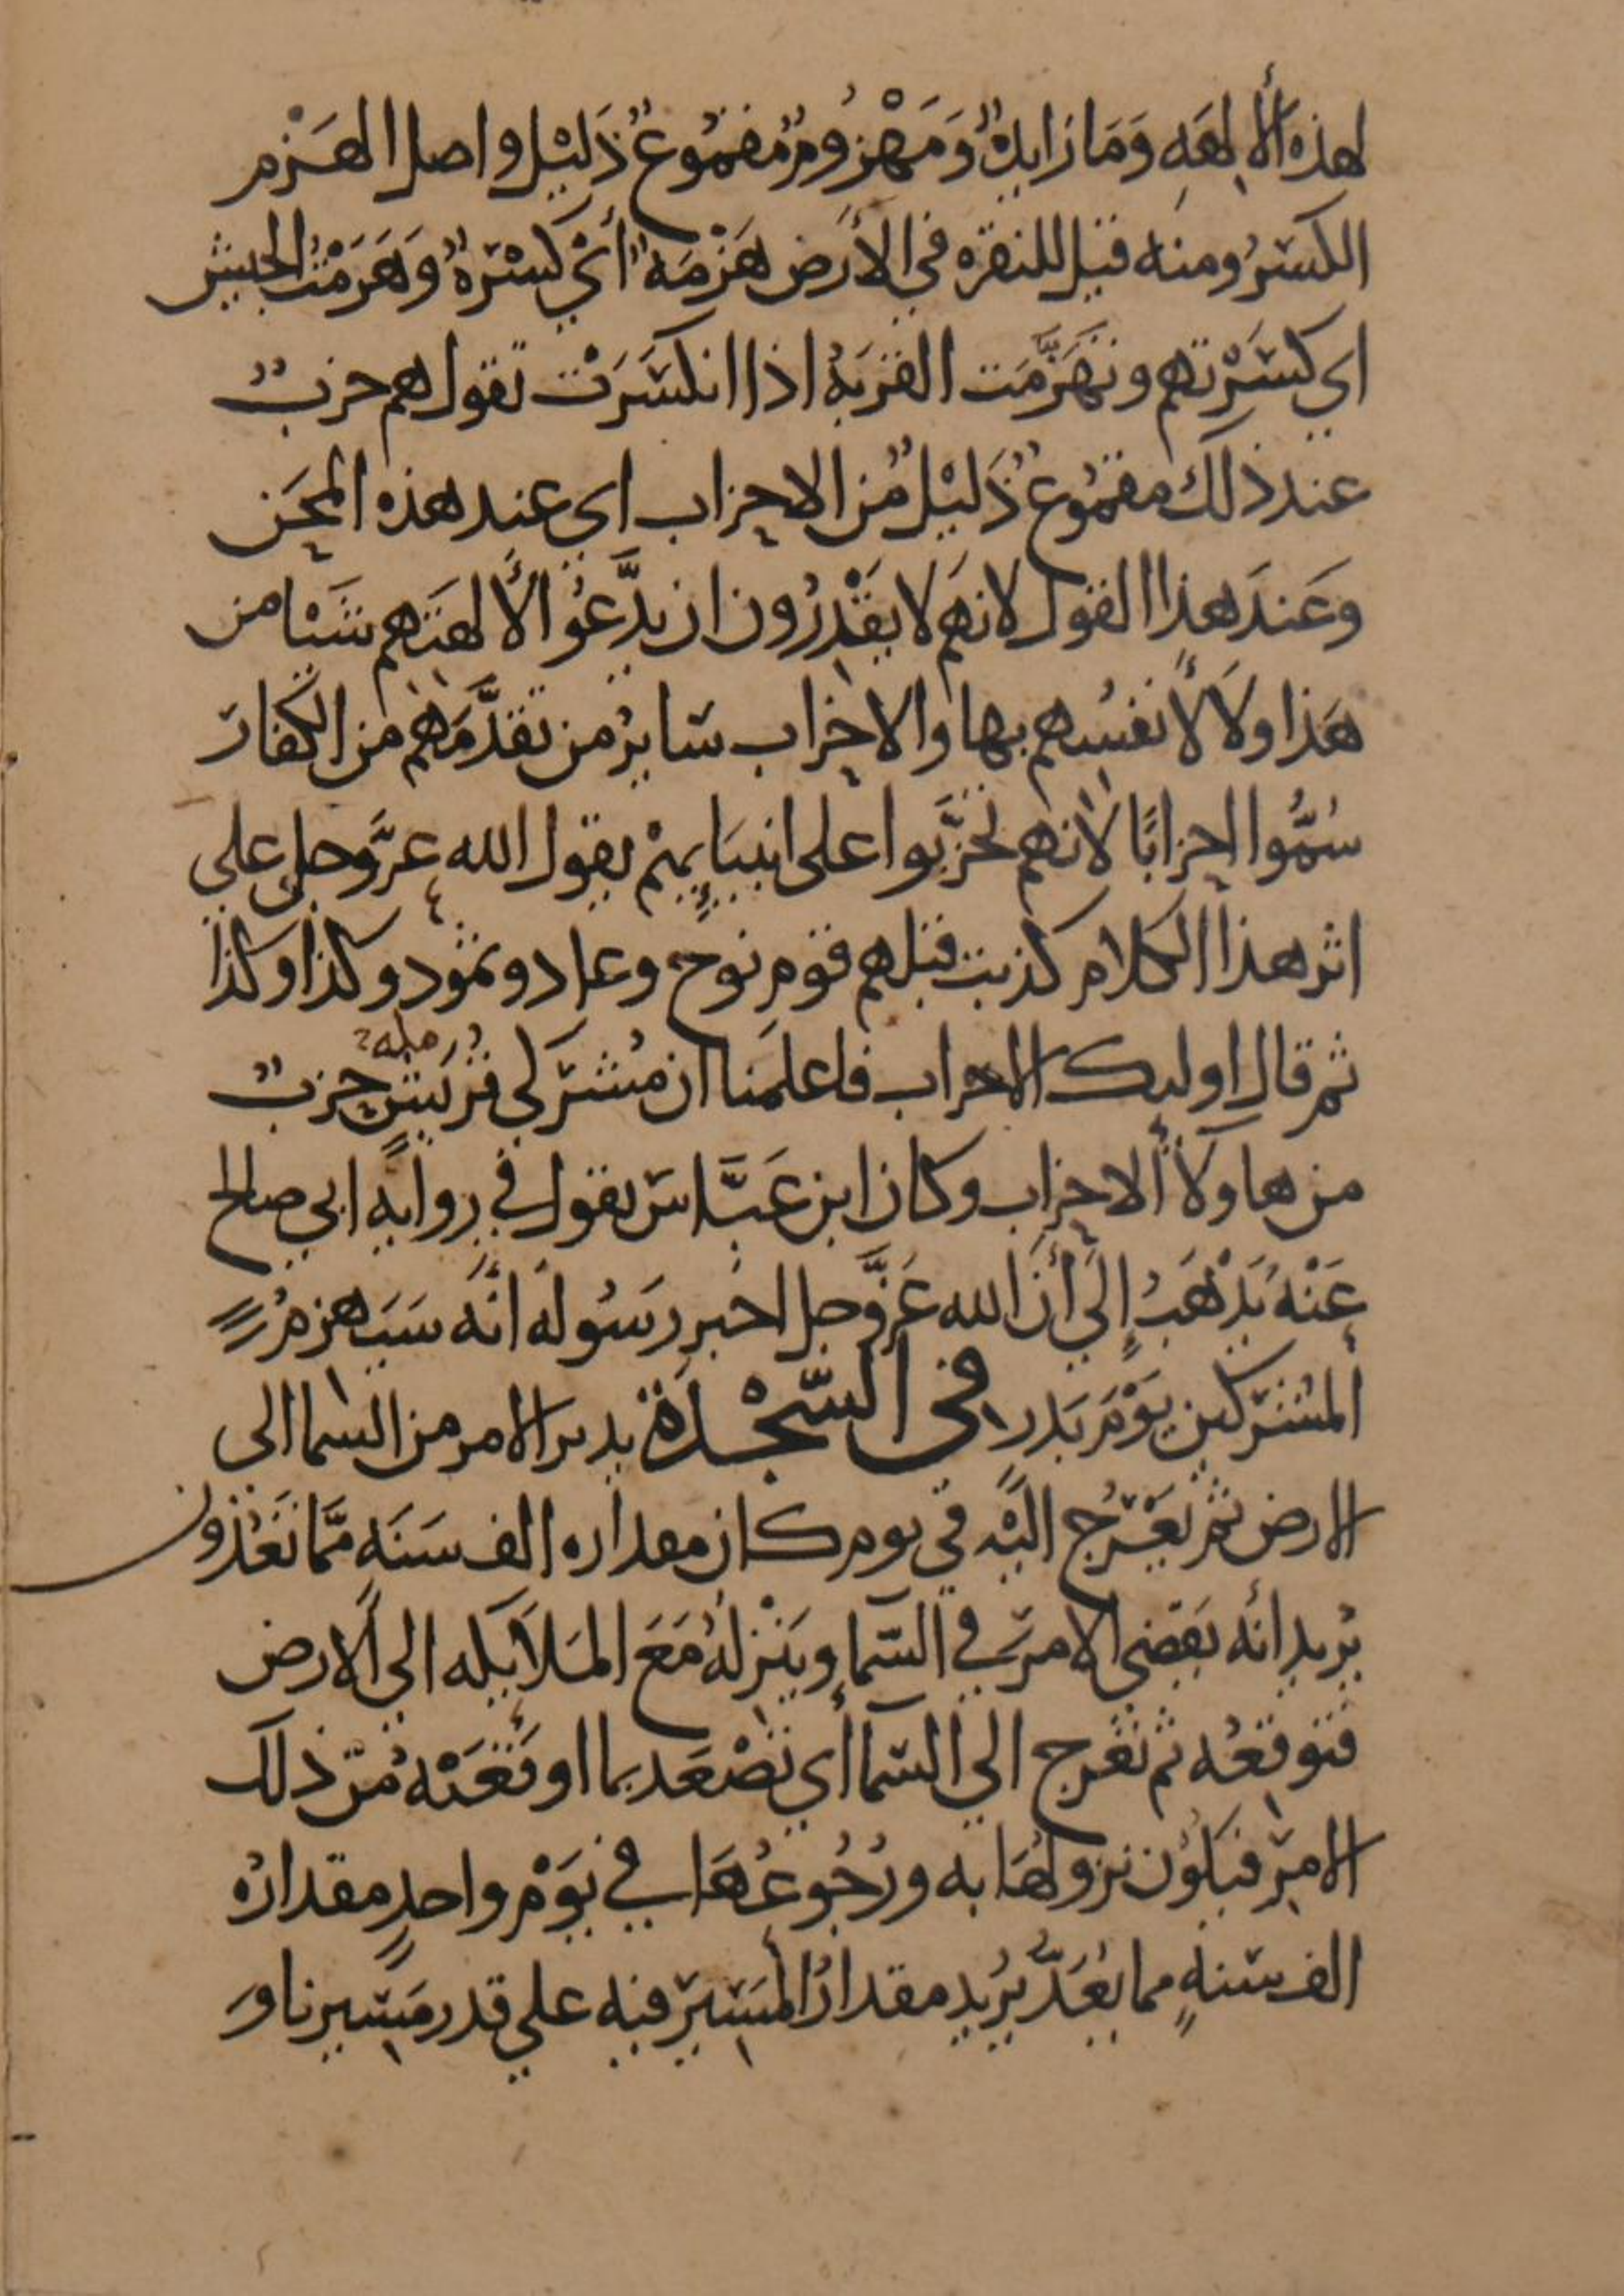 لهذه الالهه وَمَا زايدهٌ وَمَهْزُومٌ مقموعٌ ذَليْل واصل الهَزْم
الكَسْرُ ومنه قيل للنقره في الأرَض هَزْمَة" أيْ كَسْرَةٌ وَهَزَمْتُ الجيش
اي كَسَرْتهم وتَهَزَّمَت القِرْبَةُ اذا انكسَرَتْ تقول هم حزبٌ
عند ذلك مقموعٌ ذَليْلٌ مُن الاحزاب اي عند هذه المحَن
وعَندَ هذا القول لانهم لا يقْدِرُون ان يدَّعُو الأ لهتهم شَيْا من
هَذا ولاَ لأنفسُهم بها والاحزاب سَايرُ من تقدَّمَهم من الكفار
سُمُّوا احزابًا لانهم تحزَّبوا على انبيَايهِمْ يقول الله عزَّوجل على
اثر هذا الكلام كذبت قبلهم قوم نوح وعاد وثمود وكذا وكذا
ثم قال اوليك الاحزاب فاعلمَنا ان مُشركي قُريش حزبٌ
مله
من هاولاْ الاحزاب وكان ابن عَبَّاسَ يقول في روايهِ ابي صالح
عَنْهُ يَذْهَبُ إلي أن الله عَزَّوجل اخبر رَسُولَه انَّه سَيَهزمُ
المشركين يَوْمَ بَدر في السَّجْدَة يدبر الامر من السما الى
الارض ثم يَعْرُج اليْه في يوم كان مقداره الف سَنَه ممَّا تَعُدُّون
يُريد انه يَقضي الامر في السَّما ويَنْزلُه مَعَ المَلاَيكه الي الارض
فتوقعُه ثم تَعْرج الي السَّما أي تَصْعَد بما اوقَعَتْه مُن ذلك
الامر فيكُون نزولُهَا به ورُجُوعُهَا في يَوْم واحدٍ مقدارُه
الف سنهٍ مما يُعَدُّ يُريد مقدارُ المَسِير فيه علي قدر مَسِيرنا وَ